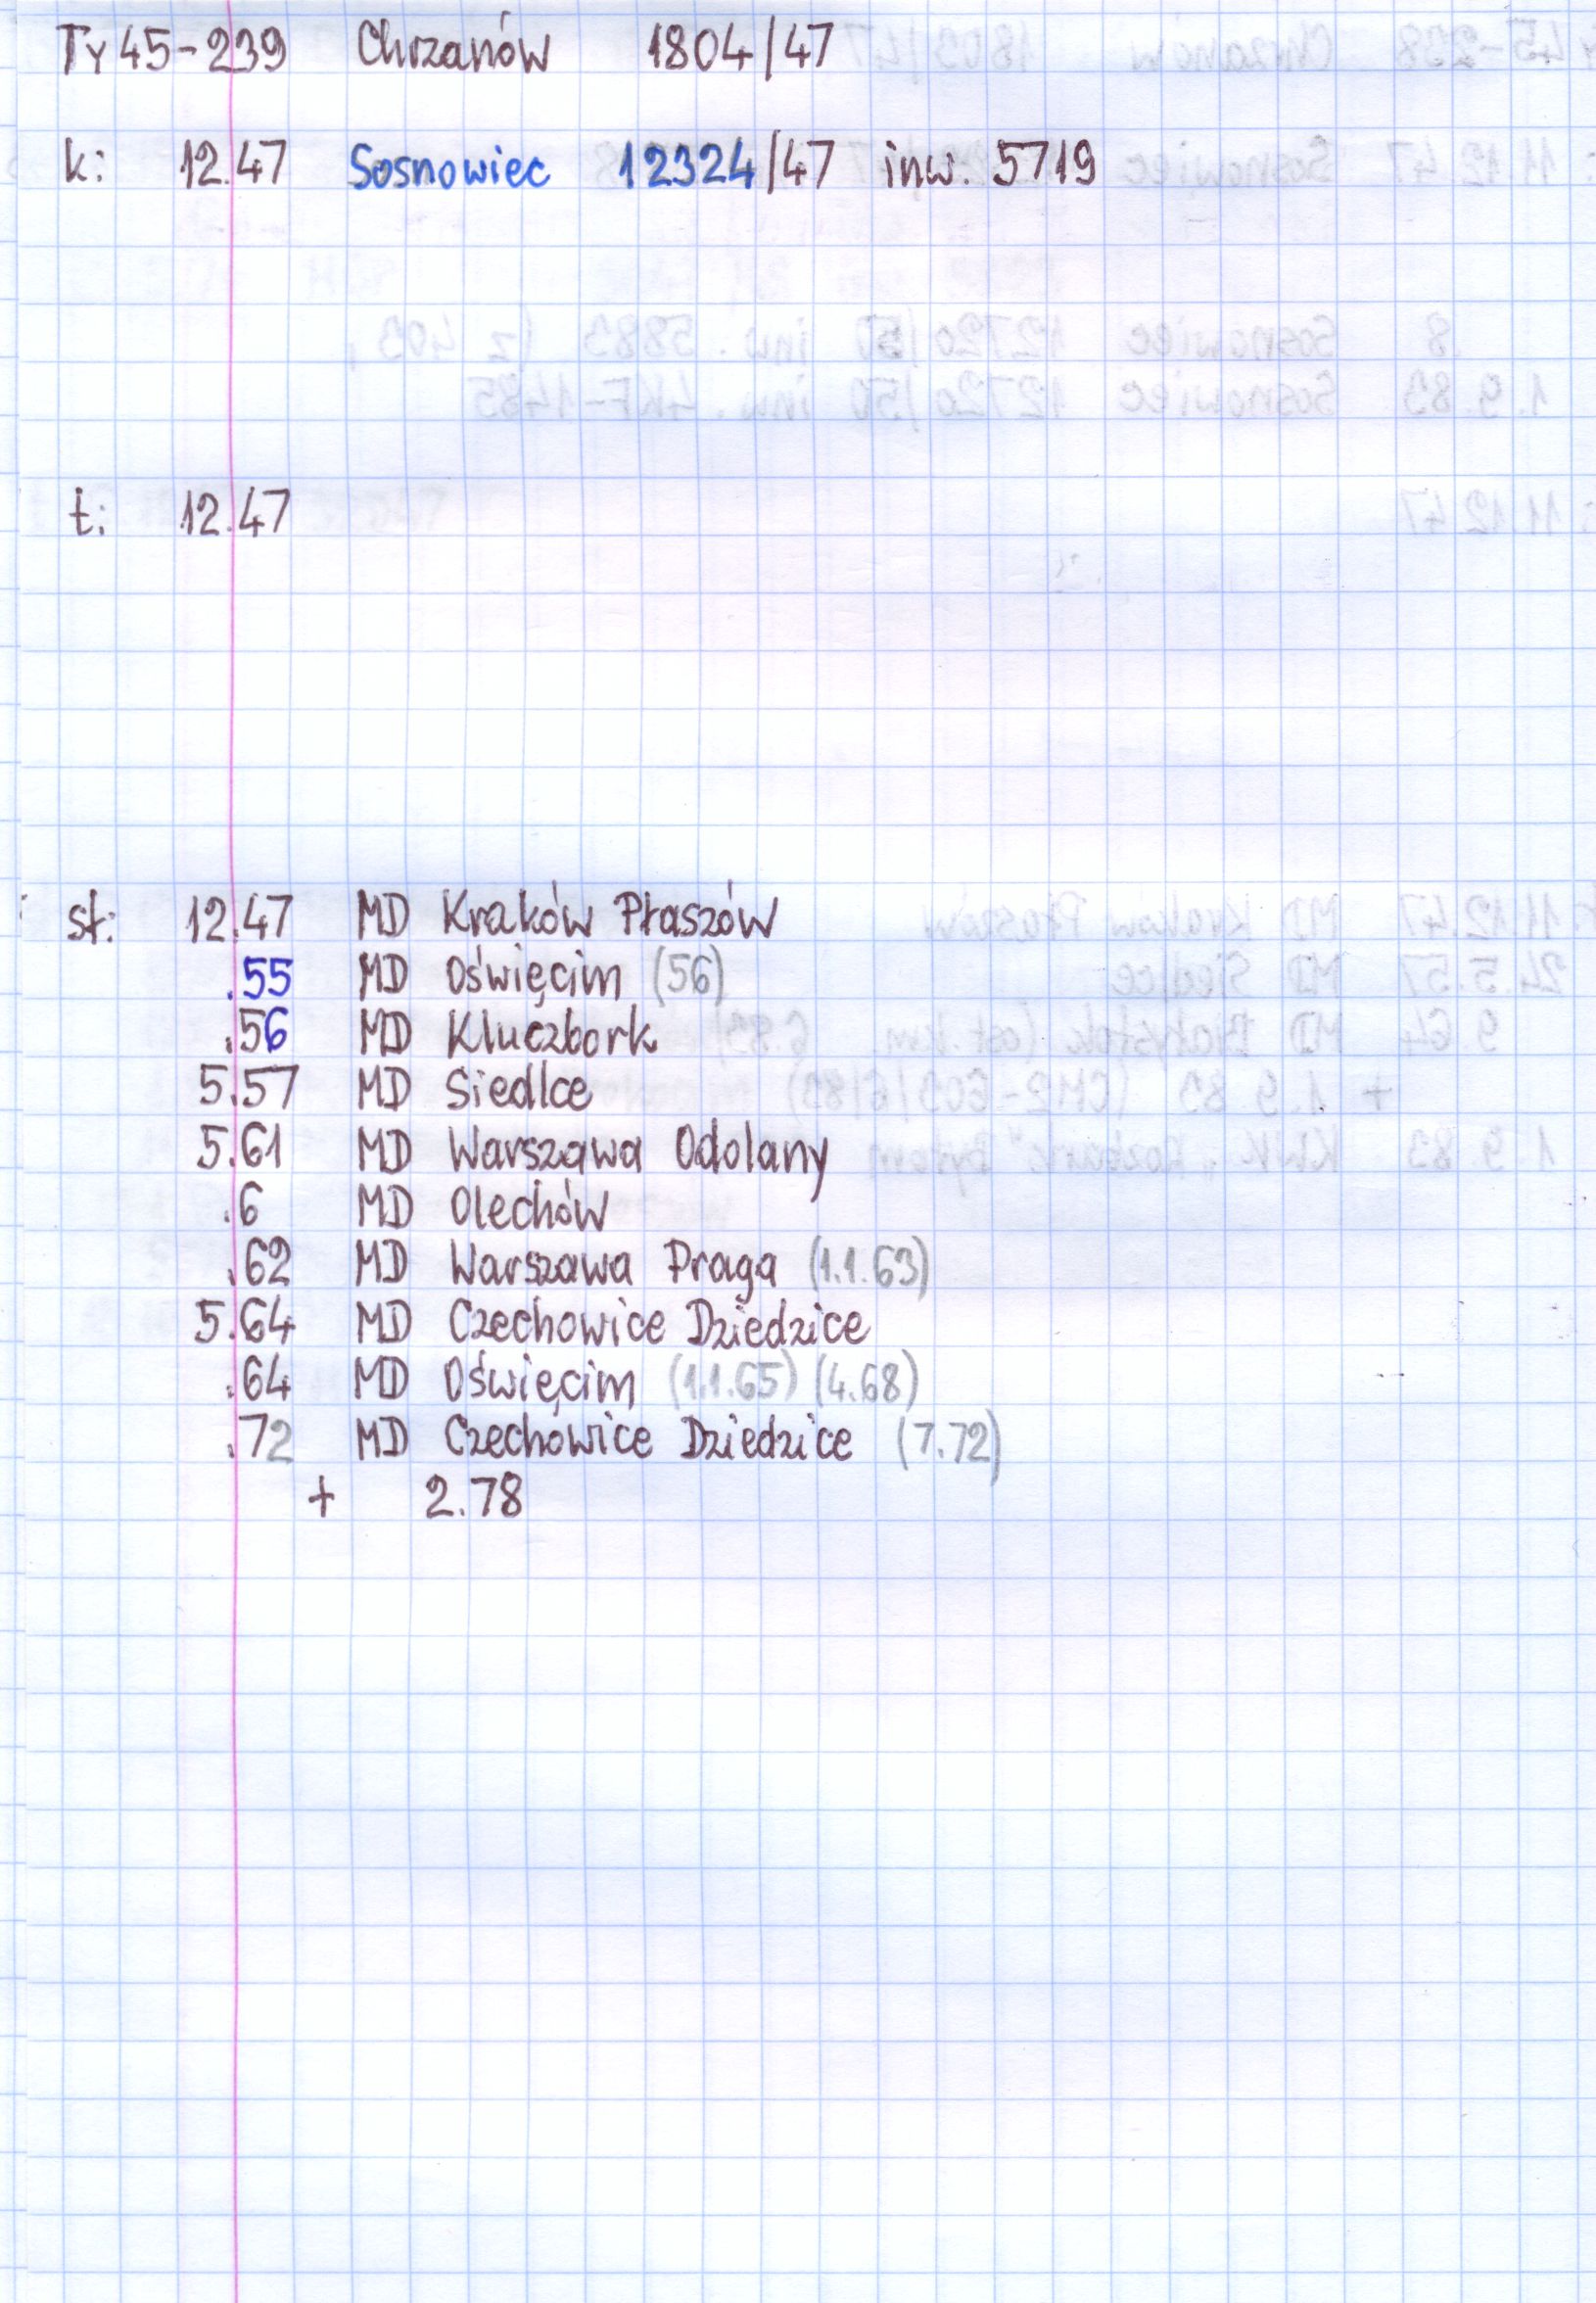 Ty 45-239 Chrzanów 1804/47
k: 12.47 Sosnowiec 12324/47 inw. 5719
t: 12.47
st: 12.47 MD Kraków Płaszów
.55 MD Oświęcim (56)
.56 MD Kluczbork
5.57 MD Siedlce
5.61 MD Warszawa Odolany
.6 MD Olechów
.62 MD Warszawa Praga (1.1.63)
5.64 MD Czechowice Dziedzice
.64 MD Oświęcim (1.1.65) (4.68)
.72 MD Czechowice Dziedzice (7.72)
+ 2.78